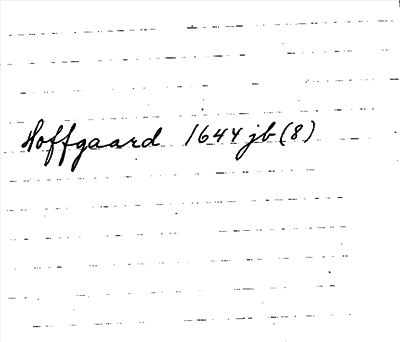 Hoffgaard 1644 jb (8)